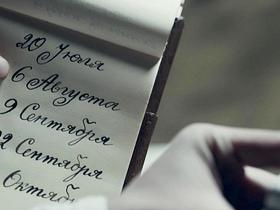 20 Июля
6 Августа
9 Сентября
2 Сентября
Октябр